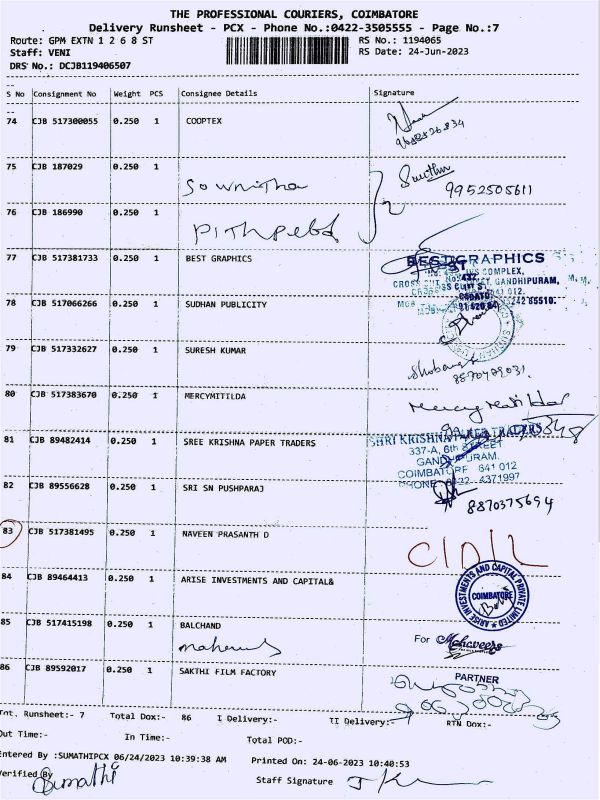 THE PROFESSIONAL COURIERS, COIMBATORE
Delivery Runsheet - PCX - Phone No.:0422-3505555 - Page No.:7
Route: GPM EXTN 1 2 6 8 ST RS No.: 1194065
Staff: VENI RS Date: 24-Jun-2023
DRS No.: DCJB119406507
S No Consignment No Weight PCS Consignee Details Signature
74 CJB 517300055 0.250 1 COOPTEX
75 CJB 187029 0.250 1 Sownitha
9952505611
76 CJB 186990 0.250 1
77 CJB 517381733 0.250 1 BEST GRAPHICS BEST GRAPHICS
78 CJB 517066266 0.250 1 SUDHAN PUBLICITY
79 CJB 517332627 0.250 1 SURESH KUMAR
80 CJB 517383670 0.250 1 MERCYMITILDA
81 CJB 89482414 0.250 1 SREE KRISHNA PAPER TRADERS SHRI KRISHNA PAPER TRADERS
337-A, 6th STREET
GANDHIPURAM,
COIMBATORE 641 012
PHONE 0422 4371997
82 CJB 89556628 0.250 1 SRI SN PUSHPARAJ
8870375694
83 CJB 517381495 0.250 1 NAVEEN PRASANTH D
84 CJB 89464413 0.250 1 ARISE INVESTMENTS AND CAPITAL&
ARISE INVESTMENTS AND CAPITAL PRIVATE LIMITED
COIMBATORE
85 CJB 517415198 0.250 1 BALCHAND
For Mahaveers
86 CJB 89592017 0.250 1 SAKTHI FILM FACTORY
PARTNER
Tnt. Runsheet:- 7 Total Dox:- 86 I Delivery:- II Delivery:- RTN Dox:-
Out Time:- In Time:- Total POD:-
Entered By :SUMATHIPCX 06/24/2023 10:39:38 AM Printed On: 24-06-2023 10:40:53
Verified By Sumathi Staff Signature